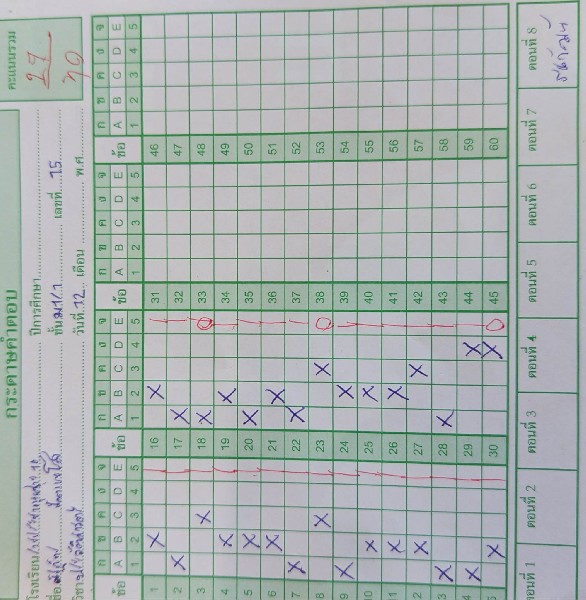 กระดาษคำตอบ
คะแนนรวม
โรงเรียน
ปีการศึกษา
ชื่อ
ชั้น
เลขที่ 15
วิชา
วันที่ 12 เดือน
พ.ศ.
ข้อ ก ข ค ง จ
A B C D E
1 2 3 4 5
1
2
3
4
5
6
7
8
9
10
11
12
13
14
ข้อ ก ข ค ง จ
A B C D E
1 2 3 4 5
16
17
18
19
20
21
22
23
24
25
26
27
28
29
30
ข้อ ก ข ค ง จ
A B C D E
1 2 3 4 5
31
32
33
34
35
36
37
38
39
40
41
42
43
44
45
ข้อ ก ข ค ง จ
A B C D E
1 2 3 4 5
46
47
48
49
50
51
52
53
54
55
56
57
58
59
60
ตอนที่ 1
ตอนที่ 2
ตอนที่ 3
ตอนที่ 4
ตอนที่ 5
ตอนที่ 6
ตอนที่ 7
ตอนที่ 8